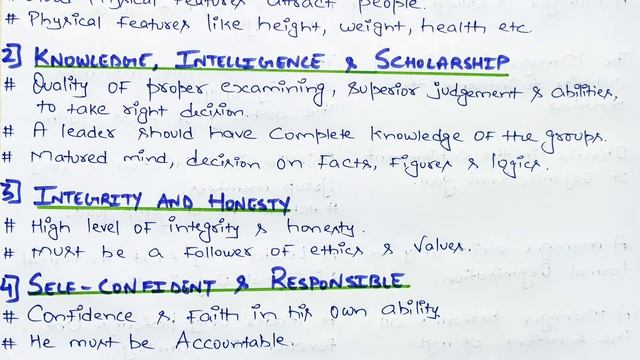 Physical Features attract people.
# Physical Features like height, weight, health etc
2] KNOWLEDGE, INTELLIGENCE & SCHOLARSHIP
# Quality of proper examining, superior judgement & abilities,
to take right decision.
# A leader should have Complete Knowledge of the groups.
# Matured mind, decision on Facts, Figures & logics.
3] INTEGRITY AND HONESTY
# High level of integrity & honesty.
# Must be a Follower of ethics & Values.
4] SELF-CONFIDENT & RESPONSIBLE
# Confidence & Faith in his own ability
# He must be Accountable.